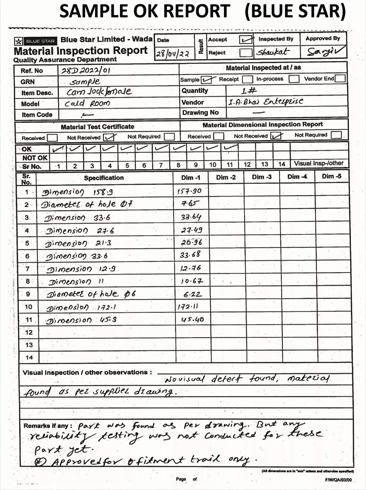 SAMPLE OK REPORT (BLUE STAR)
BLUE STAR Blue Star Limited - Wada
Material Inspection Report
Quality Assurance Department
Date
28/04/22
Result
Accept ✓
Reject
Inspected By
Shaukat
Approved By
Ref. No 28D2022/01
Material Inspected at / as
GRN Sample
Sample ✓ Receipt In-process Vendor End
Item Desc.
Quantity 1#
Model Cold Room
Vendor
Item Code -
Drawing No -
Material Test Certificate
Material Dimensional Inspection Report
Received Not Received ✓ Not Required
Received Not Received ✓ Not Required
OK ✓ ✓ ✓ ✓ ✓ ✓ ✓ ✓ ✓ ✓ ✓
NOT OK
Sr No. 1 2 3 4 5 6 7 8 9 10 11 12 13 14 Visual Insp./other
Sr. No. Specification Dim -1 Dim -2 Dim -3 Dim -4 Dim -5
1 Dimension 158.9 157.90
2 Diameter of hole Ø7 7.65
3 Dimension 33.6 33.64
4 Dimension 27.6 27.49
5 Dimension 21.3 20.96
6 Dimension 33.6 33.68
7 Dimension 12.9 12.76
8 Dimension 11 10.67
9 Diameter of hole Ø6 6.22
10 Dimension 172.1 172.11
11 Dimension 45.3 45.40
12
13
14
Visual Inspection / other observations :
No visual defect found, material
found as per supplier drawing.
Remarks if any : Part was found as per drawing. But any
reliability testing was not conducted for these
part yet.
Approved for fitment trail only.
(All dimensions are in "mm" unless and otherwise specified)
Page of